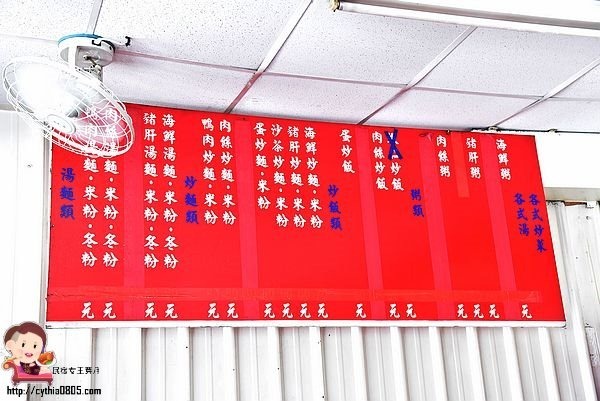 湯麵類
肉麵·米粉·冬粉
肉麵·米粉·冬粉
豬肝湯麵·米粉·冬粉
海鮮湯麵·米粉·冬粉
炒麵類
鴨肉炒麵·米粉
肉絲炒麵·米粉
蛋炒麵·米粉
沙茶炒麵·米粉
豬肝炒麵·米粉
海鮮炒麵·米粉
炒飯類
蛋炒飯
肉絲炒飯
炒飯
粥類
肉絲粥
豬肝粥
海鮮粥
各式湯
各式炒菜
元 元 元 元 元 元 元 元 元 元 元 元 元 元 元 元 元
民宿女王芽月
http://cythia0805.com